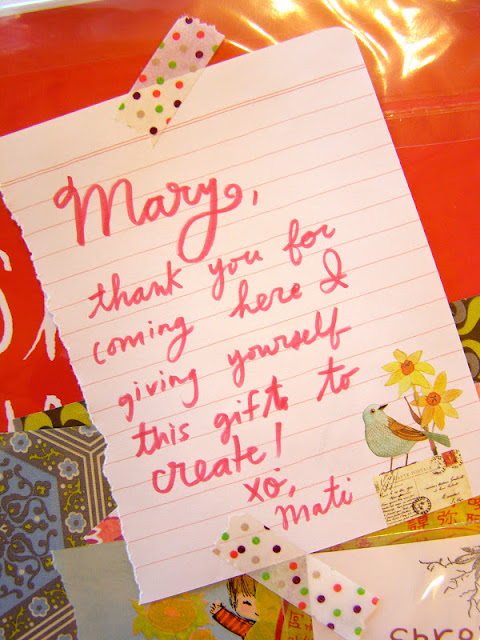 Mary,
thank you for
coming here &
giving yourself
this gift to
create!
xo,
Mati
chro